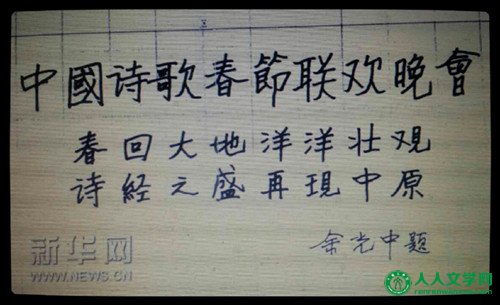 中國诗歌春節联欢晚會
春回大地洋洋壮观
诗經之盛再現中原
余光中題
新华网
WWW.NEWS.CN
人人文学网
renrenwenxue.com